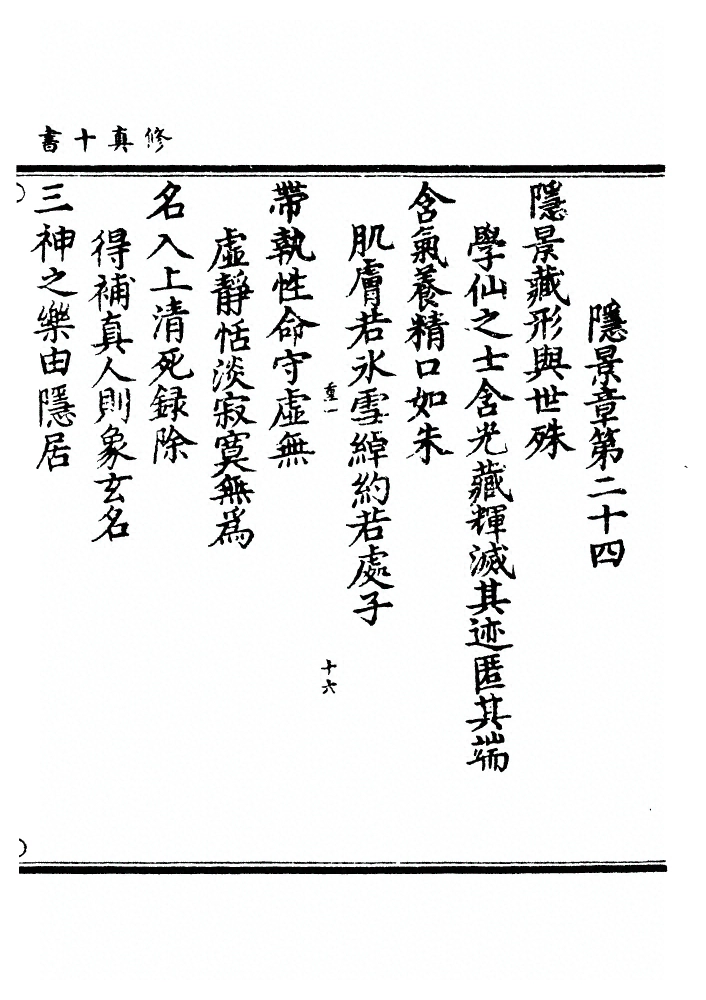 修真十書
隱景章第二十四
隱景藏形與世殊
學仙之士含光藏輝滅其迹匿其端
含氣養精口如朱
肌膚若氷雪綽約若處子
重一
十六
帶執性命守虛無
虛靜恬淡寂寞無為
名入上清死録除
得補真人則象玄名
三神之樂由隱居